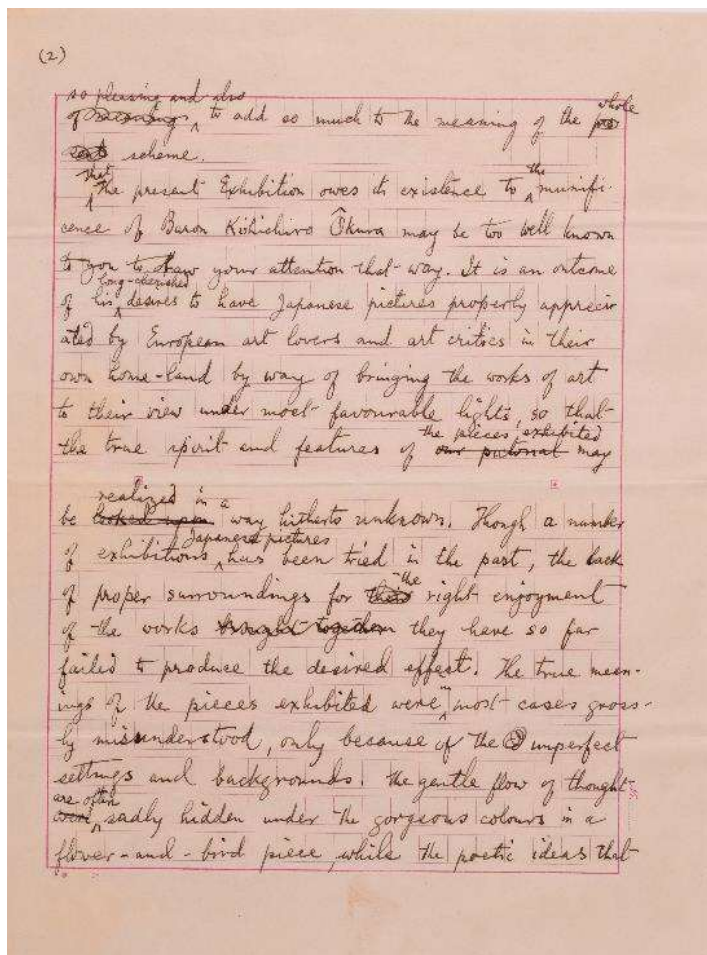 (2)
so pleasing and also
of meaning ^ to add so much to the meaning of the whole
scheme.
that
^ the present Exhibition owes its existence to ^ the munifi-
cence of Baron Kihichiro Ôkura may be too well known
to you to draw your attention that way. It is an outcome
long-cherished
of his ^ desires to have Japanese pictures properly appreci
ated by European art lovers and art critics in their
own home-land by way of bringing the works of art
to their view under most favourable lights, so that
the pieces exhibited
the true spirit and features of our pictorial may
realized in a
be looked upon way hitherto unknown. Though a number
of Japanese pictures
of exhibitions ^ has been tried in the past, the lack
the
of proper surroundings for their right enjoyment
of the works brought together they have so far
failed to produce the desired effect. The true mean-
ings of the pieces exhibited were ^ in most cases gross-
ly misunderstood, only because of the imperfect
settings and backgrounds. The gentle flow of thought
are often
were ^ sadly hidden under the gorgeous colours in a
flower-and-bird piece, while the poetic ideas that